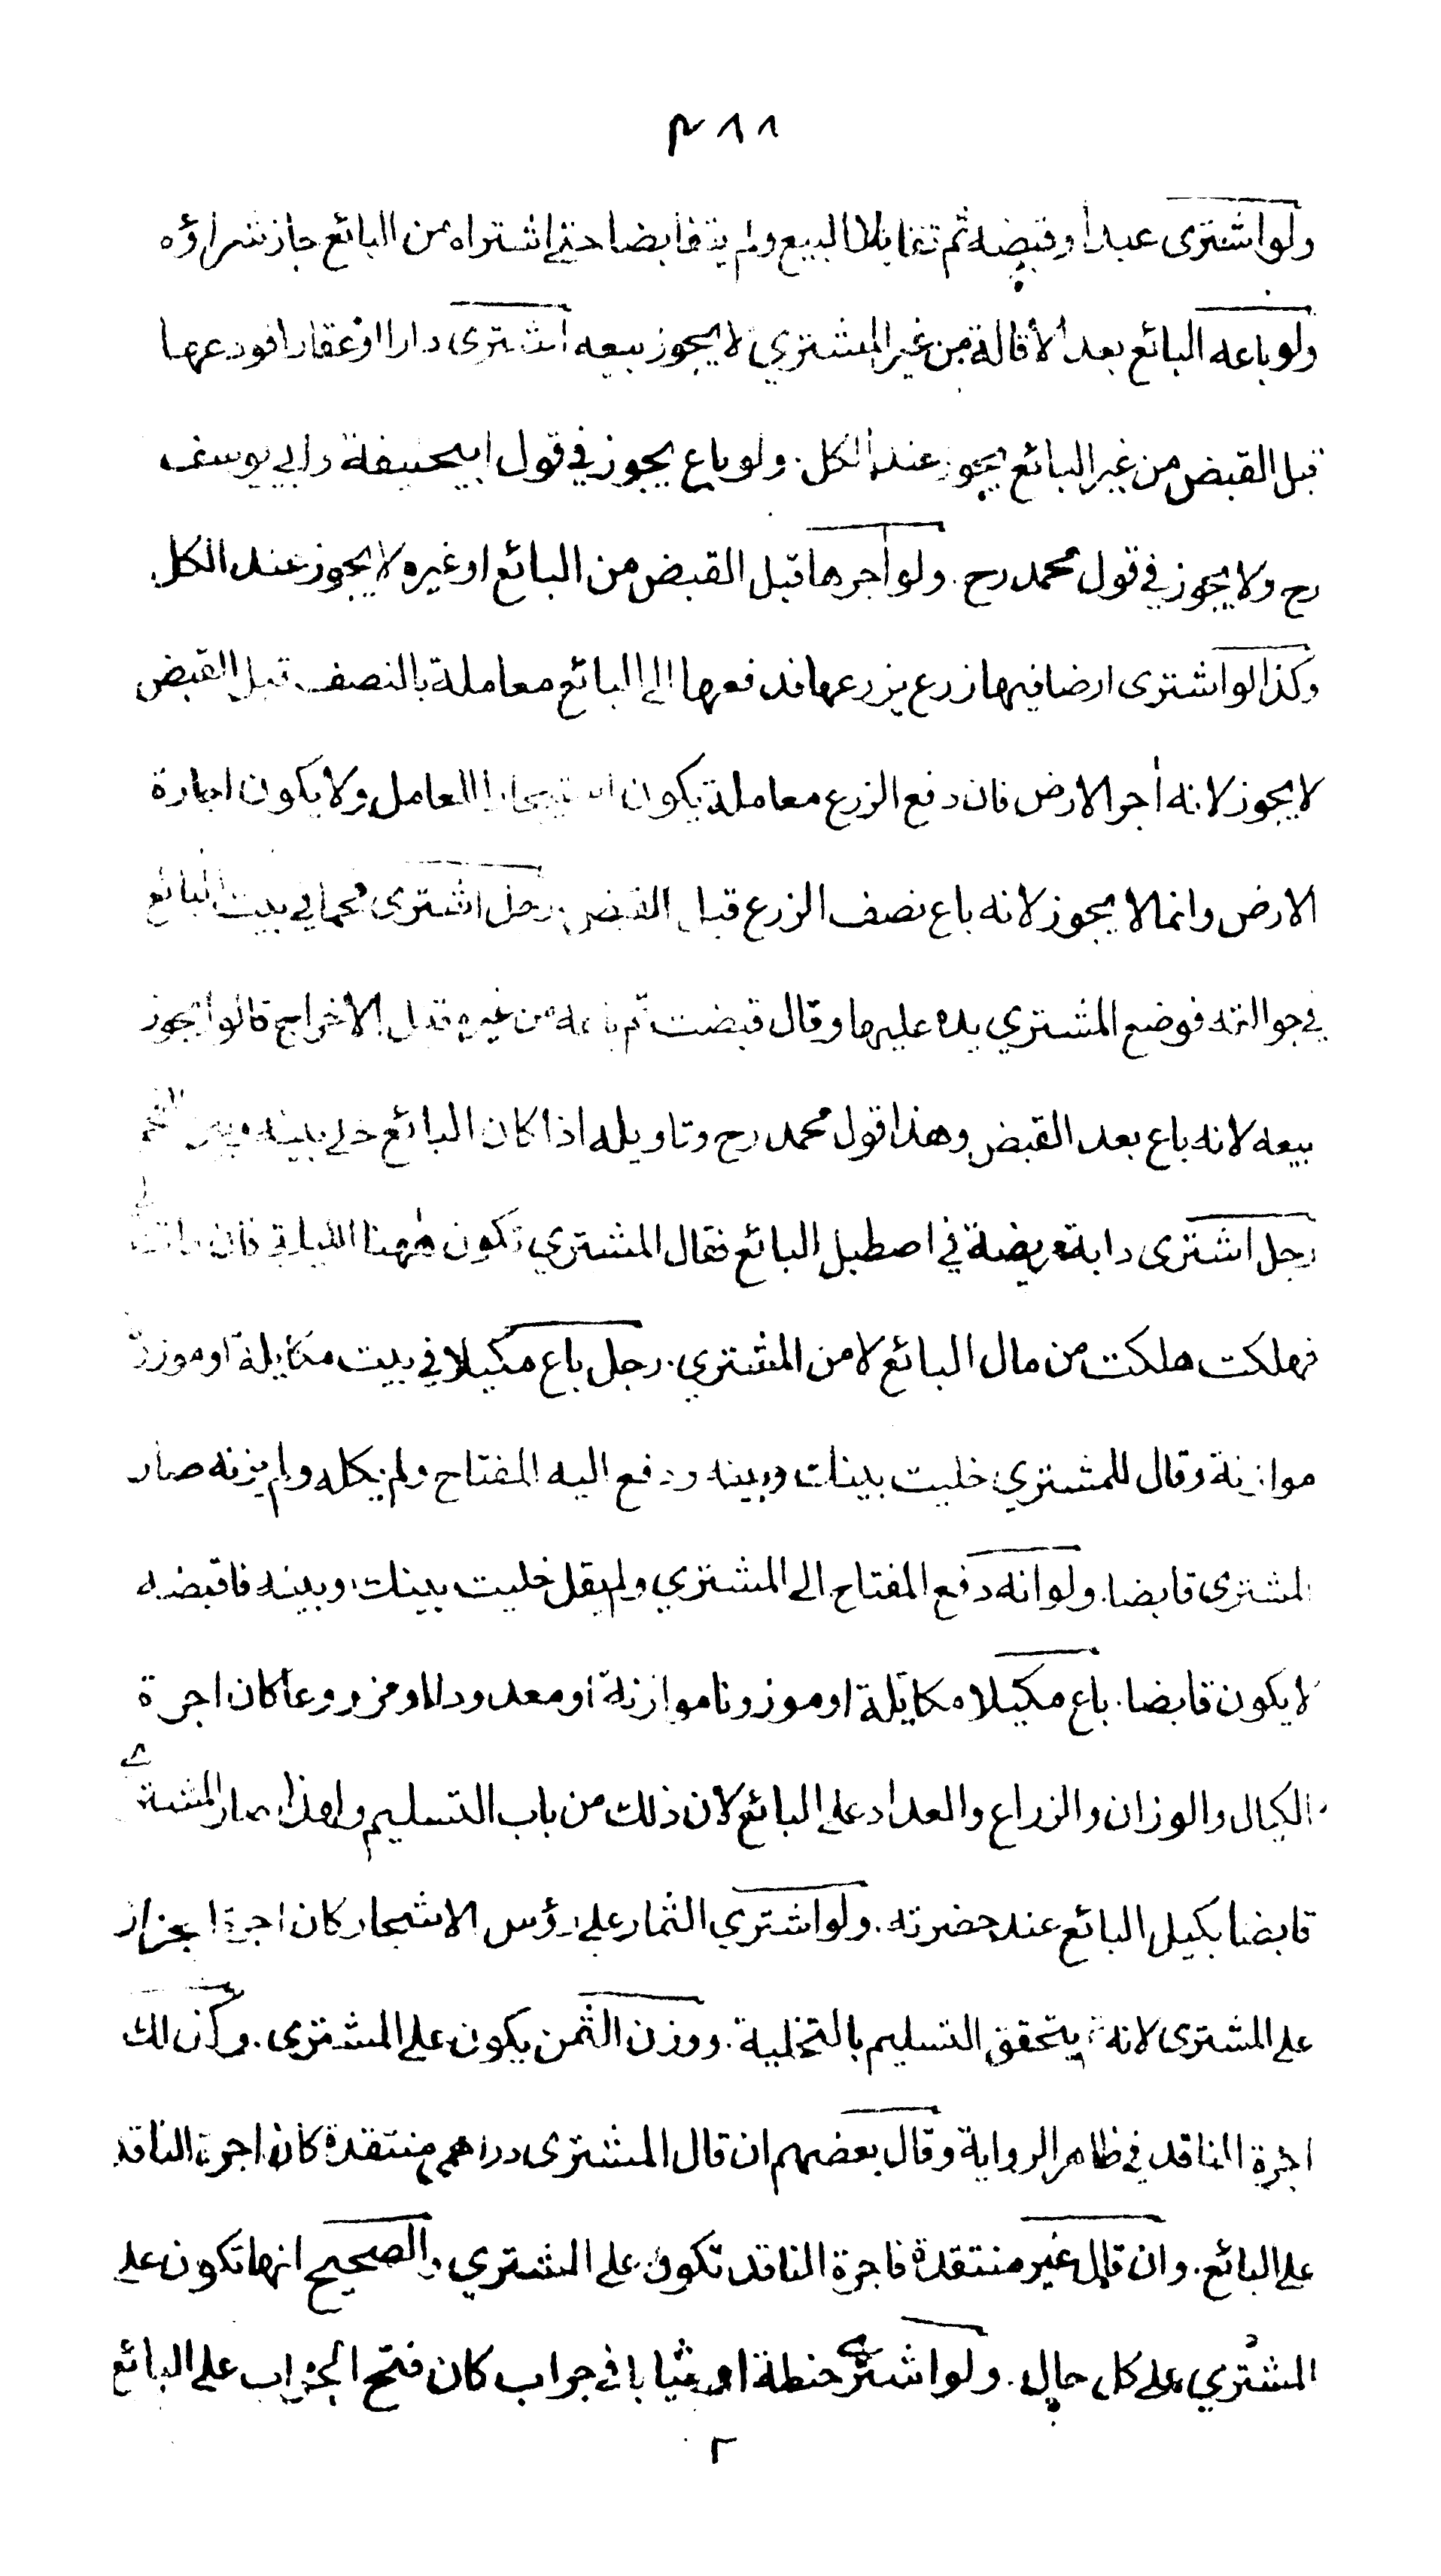 ٣٨٨
ولو اشترى عبدا وقبضه ثم تقايلا البيع ولم يتقابضا حتى اشتراه من البائع جاز شراؤه
ولو باعه البائع بعد الاقالة من غير المشتري لا يجوز بيعه اشترى دارا او عقارا فودعها
قبل القبض من غير البائع يجوز عند الكل. ولو باع يجوز في قول ابيحنيفة وابي يوسف
رح ولا يجوز في قول محمد رح. ولو أجرها قبل القبض من البائع او غيره لا يجوز عند الكل
وكذا لو اشترى ارضا فيها زرع يزرعها فدفعها الى البائع معاملة بالنصف قبل القبض
لا يجوز لانه أجر الارض فان دفع الزرع معاملة يكون استيجارا للعامل ولا يكون اجارة
الارض وانما لا يجوز لانه باع نصف الزرع قبل القبض. رجل اشترى فحما في بيت البائع
في جوالقه فوضع المشتري يده عليها وقال قبضت ثم باعه من غيره قبل الاخراج قالوا يجوز
بيعه لانه باع بعد القبض وهذا قول محمد رح وتاويله اذا كان البائع خلى بينه وبين الفحم
رجل اشترى دابة مريضة في اصطبل البائع فقال المشتري تكون ههنا الليلة فان ماتت لي
فهلكت هلكت من مال البائع لا من المشتري. رجل باع مكيلا في بيت مكايلة او موزونا
موازنة وقال للمشتري خليت بينك وبينه ودفع اليه المفتاح ولم يكله ولم يزنه صار
المشترى قابضا. ولو انه دفع المفتاح الى المشتري ولم يقل خليت بينك وبينه فاقبضه
لا يكون قابضا. باع مكيلا مكايلة او موزونا موازنة او معدودا او مزروعا كان اجرة
الكيال والوزان والزراع والعداد على البائع لان ذلك من باب التسليم ولهذا صار المشترى
قابضا بكيل البائع عند حضرته. ولو اشتري الثمار على رؤس الاشجار كان اجرة الجزاز
على المشترى لانه يتحقق التسليم بالتخلية. ووزن الثمن يكون على المشترى. وكذلك
اجرة الناقد في ظاهر الرواية وقال بعضهم ان قال المشترى دراهمي منتقدة كان اجرة الناقد
على البائع. وان قال غير منتقدة فاجرة الناقد تكون على المشتري والصحيح انها تكون على
المشتري على كل حال. ولو اشترى حنطة او ثيابا في جراب كان فتح الجراب على البائع
٢